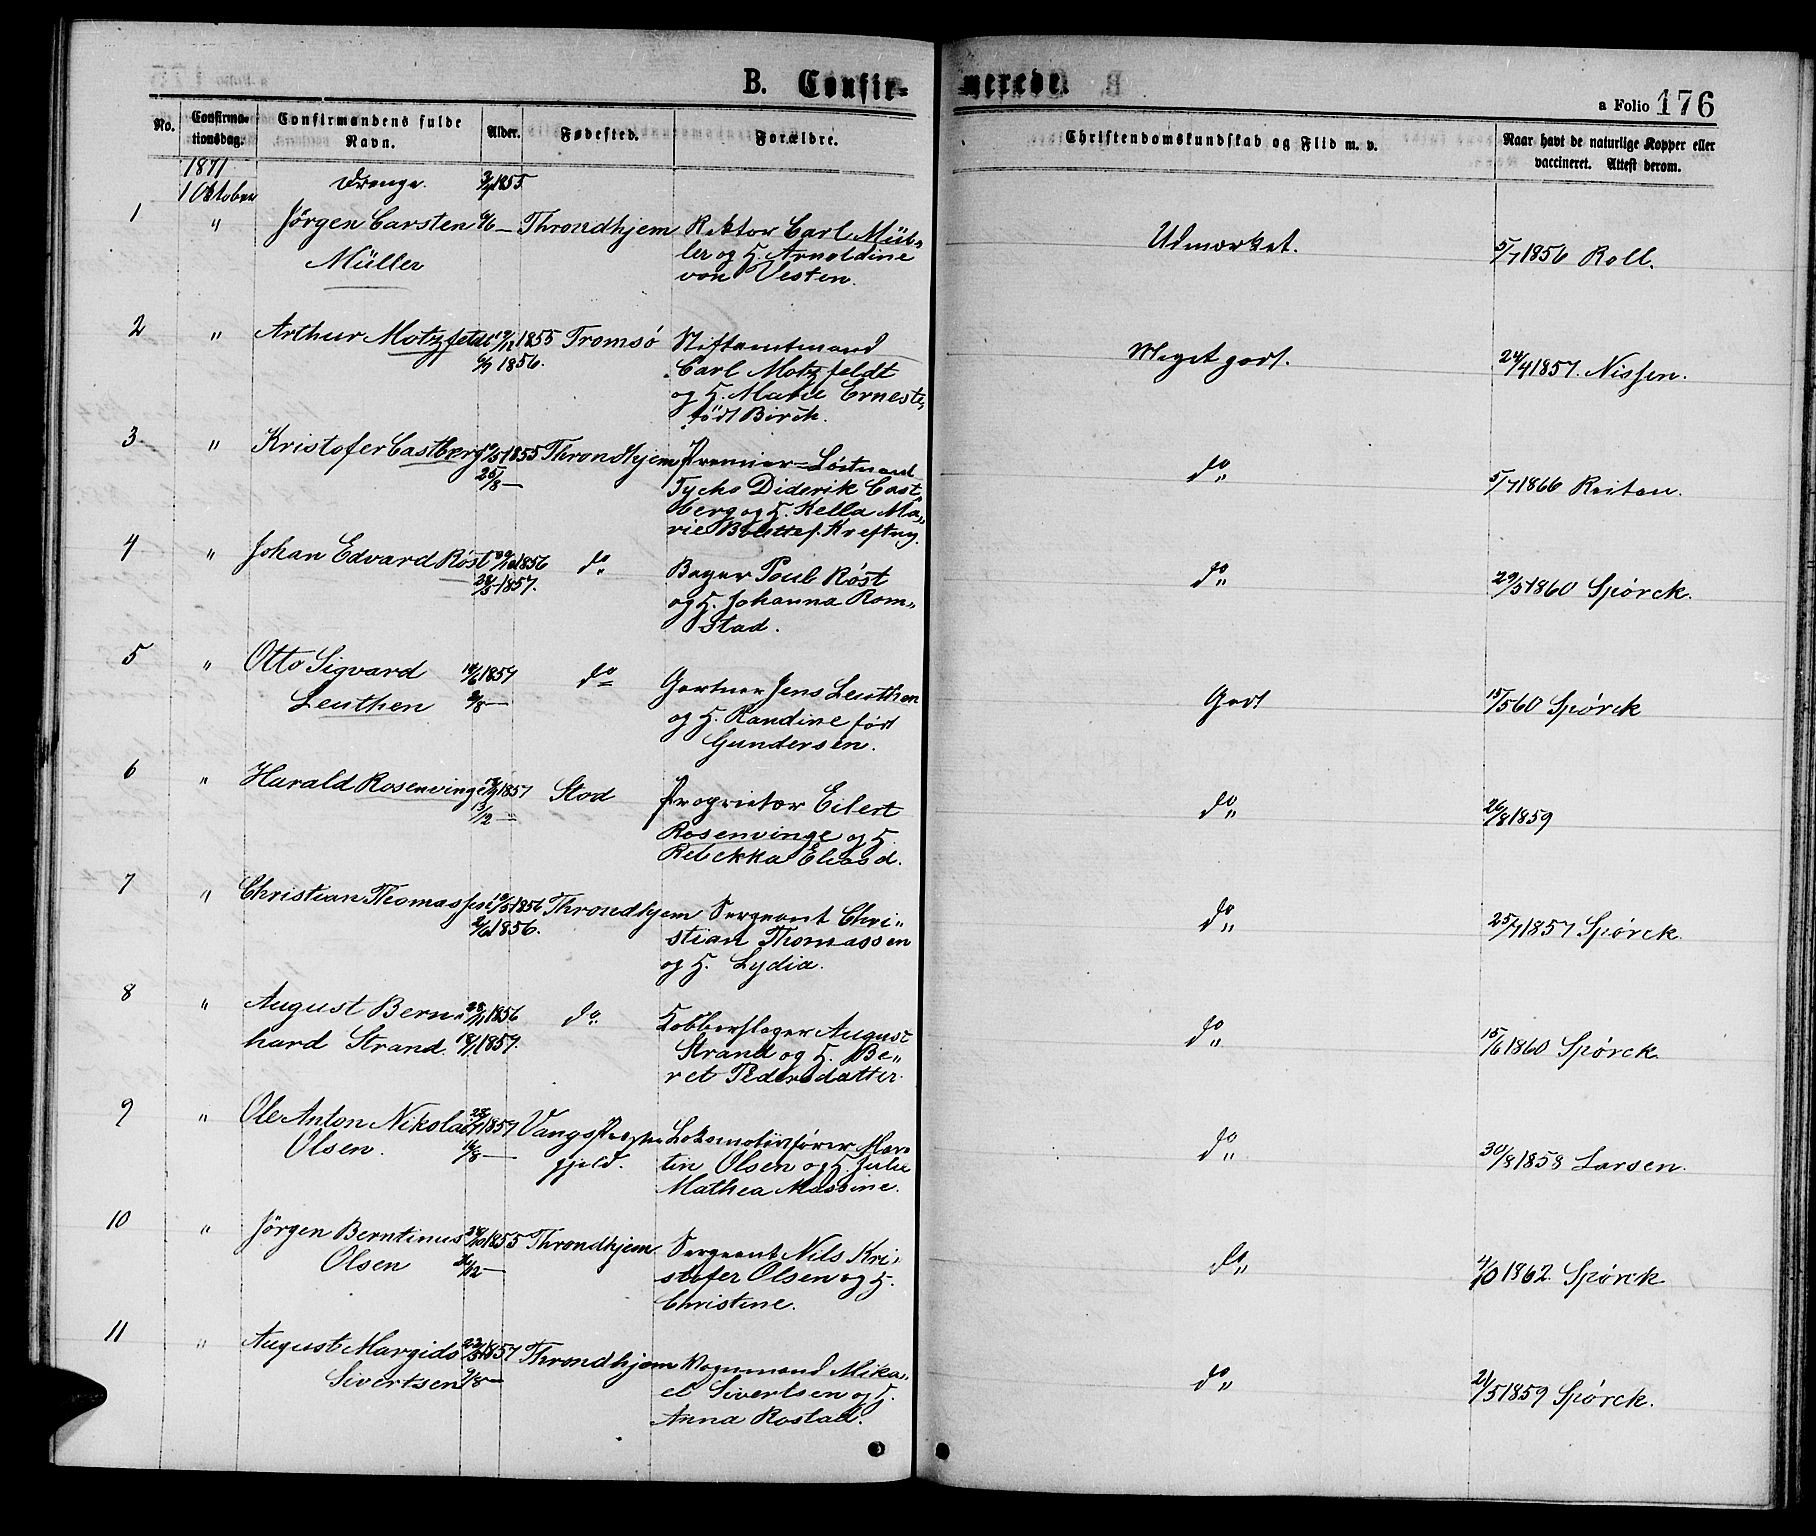 B. Confir-
merede.
a Folio 176
No.
Confirma-
tionsdag.
Confirmandens fulde
Navn.
Alder.
Fødested.
Forældre.
Christendomskundskab og Flid m. v.
Naar havt de naturlige Kopper eller
vaccineret. Attest derom.
1871
1 Oktober
Drenge.
1 " Jörgen Carsten Throndhjem Rektor Carl Mül-
Müller ler og H. Arnoldine
von Vesten.
Udmærket. 5/7 1856 Roll.
2 " Arthur Motzfeldt 1855 Tromsö Stiftamtmand
1856. Carl Motzfeldt
og H. Marie Ernest
født Birch.
Meget godt. 24/4 1857. Nissen.
3 " Kristofer Castberg 1855 Throndhjem Premier-Löitnand
25/8 — Tycho Diderik Cast
berg og H. Kella Ma"
rie Bolette f. Kreftng.
do 5/7 1866 Reitan.
4 " Johan Edvard Röst 1856 do Bager Poul Röst
28/5 1857. og H. Johanna Rom"
stad.
do 29/5 1860 Spørck.
5 " Otto Sigvard 1857 do Gartner Jens Leuthen
Leuthen 9/8 — og H. Randine født
Gundersen.
Godt 15/5 60 Spørck
6 " Harald Rosenvinge 1857 Stod Proprietær Eilert
13/2 " Rosenvinge og H.
Rebekka Eliasd.
do 26/8 1859
7 " Christian Thomassen 1856 Throndhjem Sergeant Chri"
1856. stian Thomassen
og H. Lydia.
do 25/7 1857 Spørck.
8 " August Bern" 1856 do Kobberslager August
hard Strand. 1857. Strand og H. Be"
ret Pedersdatter.
do 15/6 1860 Spørck.
9 " Ole Anton Nikolai 1857 Vangs Præste Lokomotivfører Mar"
Olsen. 16/8 — gjeld. tin Olsen og H. Julie
Mathea Massine.
do 30/8 1858 Larsen.
10 " Jörgen Berntinus 1855 Throndhjem Sergeant Nils Kri"
Olsen — stofer Olsen og H.
Christine.
do 1862. Spørck
11 " August Margido 1857 Throndhjem Vognmand Mika"
Sivertsen 9/8 — el Sivertsen og H.
Anna Rostad.
do 21/5 1859 Spørck.